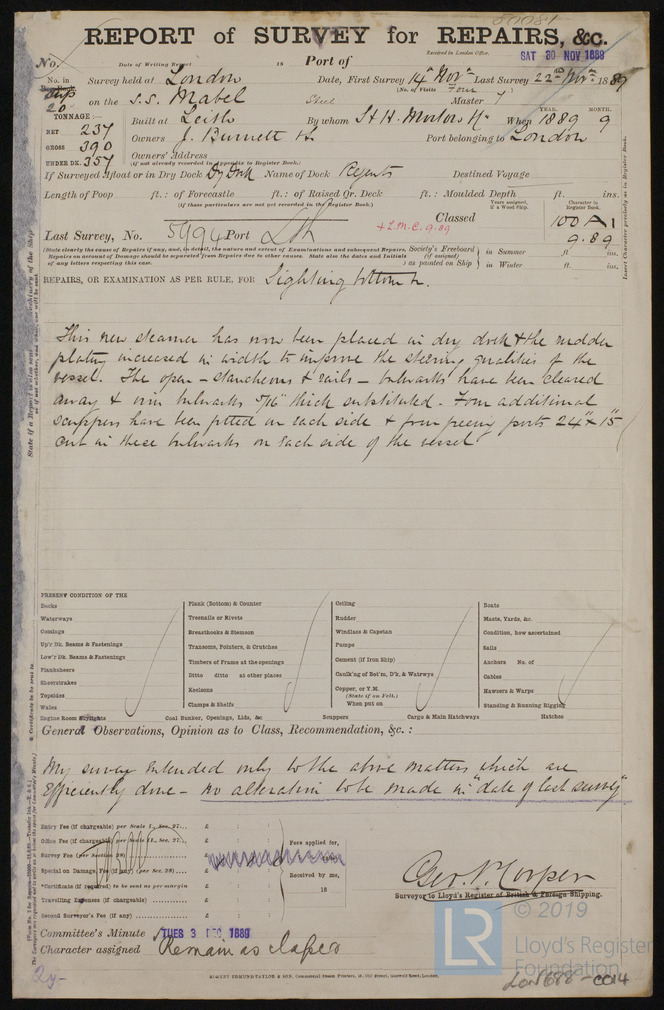 REPORT of SURVEY for REPAIRS, &c.
No.
Date of Writing Report 18
Port of
Received in London Office.
SAT 30 NOV 1889
No. in
Survey held at London
Date, First Survey 14th Novr Last Survey 22nd Novr 1889
(No. of Visits Four
on the S.S. Mabel
Steel
Master
20
TONNAGE:—
NET 237
GROSS 390
UNDER DK. 357
Built at Leith
By whom
When 1889 9
YEAR. MONTH.
Owners J. Burnett
Port belonging to London
Owners' Address
(if not already recorded in Appendix to Register Book.)
If Surveyed Afloat or in Dry Dock Dry Dock Name of Dock Regents Destined Voyage
Length of Poop ft.: of Forecastle ft.: of Raised Qr. Deck ft.: Moulded Depth ft. ins.
(If those particulars are not yet recorded in the Register Book.)
Years assigned, if a Wood Ship.
Character in Register Book.
Classed
100 A 1
9.89
+ L.M.C. 9.89
Last Survey, No. 5994 Port Lth
(State clearly the cause of Repairs if any, and, in detail, the nature and extent of Examinations and subsequent Repairs.
Repairs on account of Damage should be separated from Repairs due to other causes. State also the dates and Initials
of any letters respecting this case.
Society's Freeboard
(if assigned)
as painted on Ship
in Summer ft ins.
in Winter ft. ins.
REPAIRS, OR EXAMINATION AS PER RULE, FOR Sighting bottom &c.
This new steamer has now been placed in dry dock & the rudder
plating increased in width to improve the steering qualities of the
vessel. The open – stancheons & rails – bulwarks have been cleared
away & iron bulwarks 5/16" thick substituted. Four additional
scuppers have been fitted on each side & four freeing ports 24" x 15"
cut in these bulwarks on each side of the vessel
PRESENT CONDITION OF THE
Decks
Waterways
Comings
Up'r Dk. Beams & Fastenings
Low'r Dk. Beams & Fastenings
Planksheers
Sheerstrakes
Topsides
Wales
Engine Room Skylights
Plank (Bottom) & Counter
Treenails or Rivets
Breasthooks & Stemson
Transoms, Pointers, & Crutches
Timbers of Frame at the openings
Ditto ditto at other places
Keelsons
Clamps & Shelfs
Coal Bunker, Openings, Lids, &c
Ceiling
Rudder
Windlass & Capstan
Pumps
Cement (if Iron Ship)
Caulk'ng of Bot'm, D'k, & Watrwys
Copper, or Y.M.
(State if on Felt.)
When put on
Scuppers
Cargo & Main Hatchways
Boats
Masts, Yards, &c.
Condition, how ascertained
Sails
Anchors No. of
Cables
Hawsers & Warps
Standing & Running Rigging
Hatches
General Observations, Opinion as to Class, Recommendation, &c. :
My survey extended only to the above matters which are
efficiently done – no alteration to be made in "date of last survey"
Entry Fee (if chargeable) per Scale I., Sec. 27... £ : :
Office Fee (if chargeable) per Scale II., Sec. 27... £ : :
Survey Fee (per Section 28) £ : :
Special on Damage, Fee (if any) (per Sec. 28)... £ : :
*Certificate (if required) to be sent as per margin
Travelling Expenses (if chargeable) £ : :
Second Surveyor's Fee (if any) £ : :
Fees applied for,
Received by me,
18
Surveyor to Lloyd's Register of British & Foreign Shipping.
Committee's Minute TUES 3 DEC 1889
Character assigned Remain as classed
© 2019
LR
Lloyd's Register
Foundation
LON688-0014